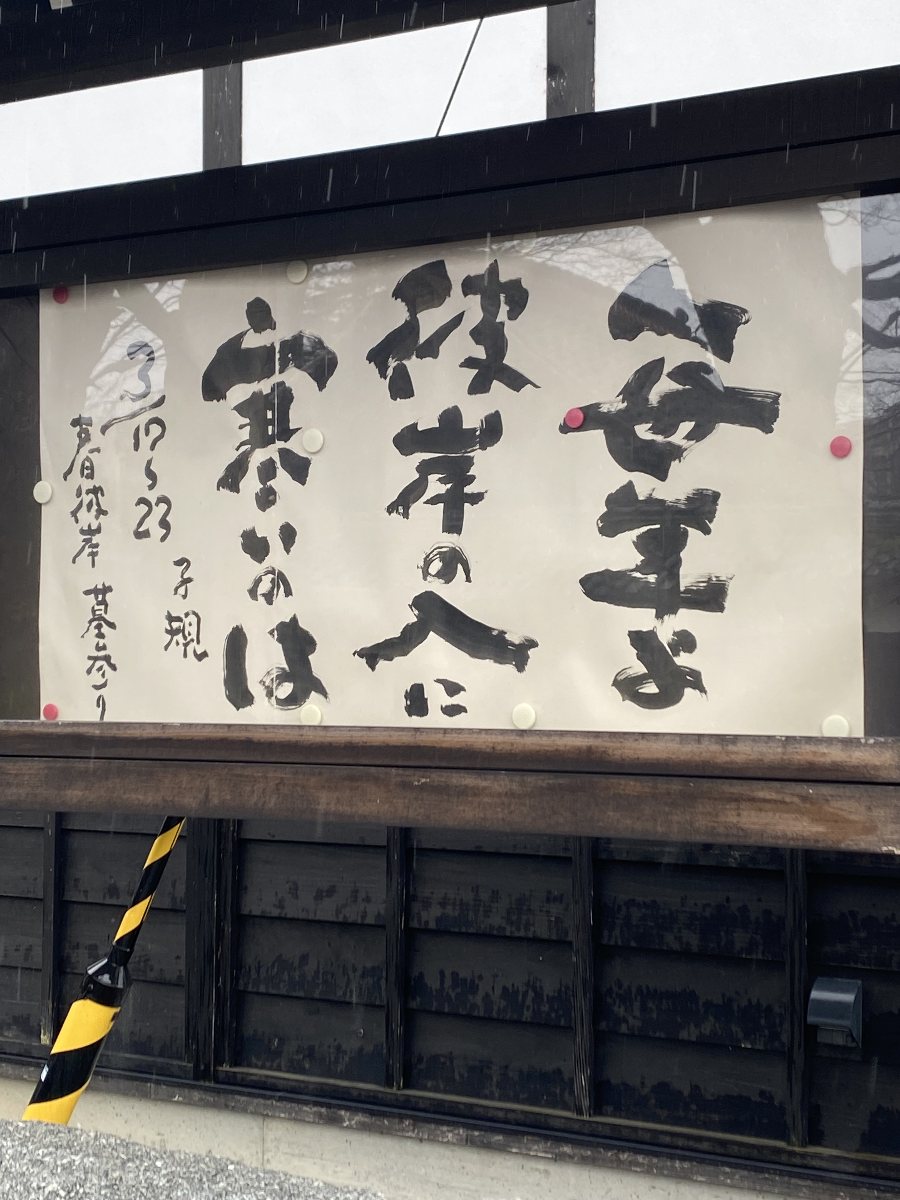 毎年よ
彼岸の入に
寒いのは
子規
3/17〜23
春彼岸 墓参り